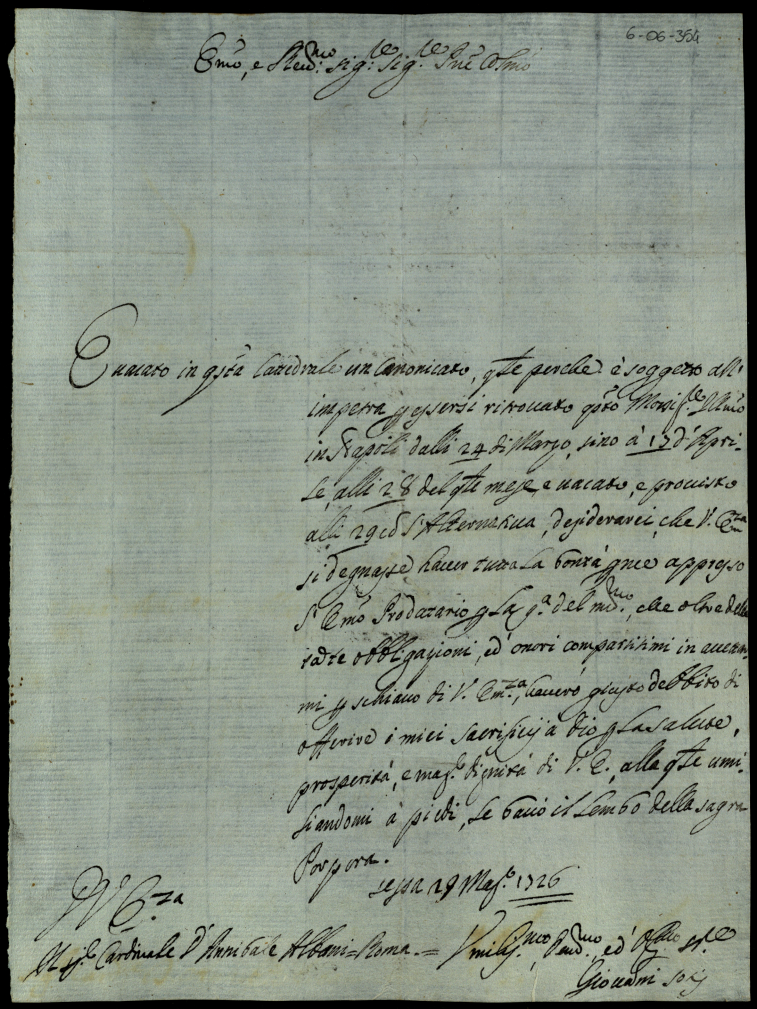 6-06-354
Emo, e Reudmo: Sigle: Sigle: Pne Colmo
E uacato in qsta Cattedrale un Canonicato, qle perche è soggetto all'
impetra p essersi ritrouato qsto Monsigle Illmo
in Napoli dalli 24 di Marzo, sino à 17 d'Apri-
le, alli 28 del qle mese, e uacato, e prouisto
alli 29 Alternatiua, desiderarei, che V. Emza
si degnasse hauer tutta la bontà appresso
l'Emo Prodatario p la ga del mdmo, che oltre delle
tante obbligazioni, ed' onori compartitimi in auermi
p schiauo di V. Emza, hauerò giusto debbito di
offerire i miei sacrificij à Dio p la salute,
prosperità, e magr dignità di V. E., alla qle umi-
liandomi à piedi, le bacio il lembo della sagra
Porpora.
Sessa 29 Mago 1726
D V Emza
Il Sigle Cardinale D'Annibale Albani = Roma. = Vmilismo, Deudmo, ed' Obbligo
Giouanni